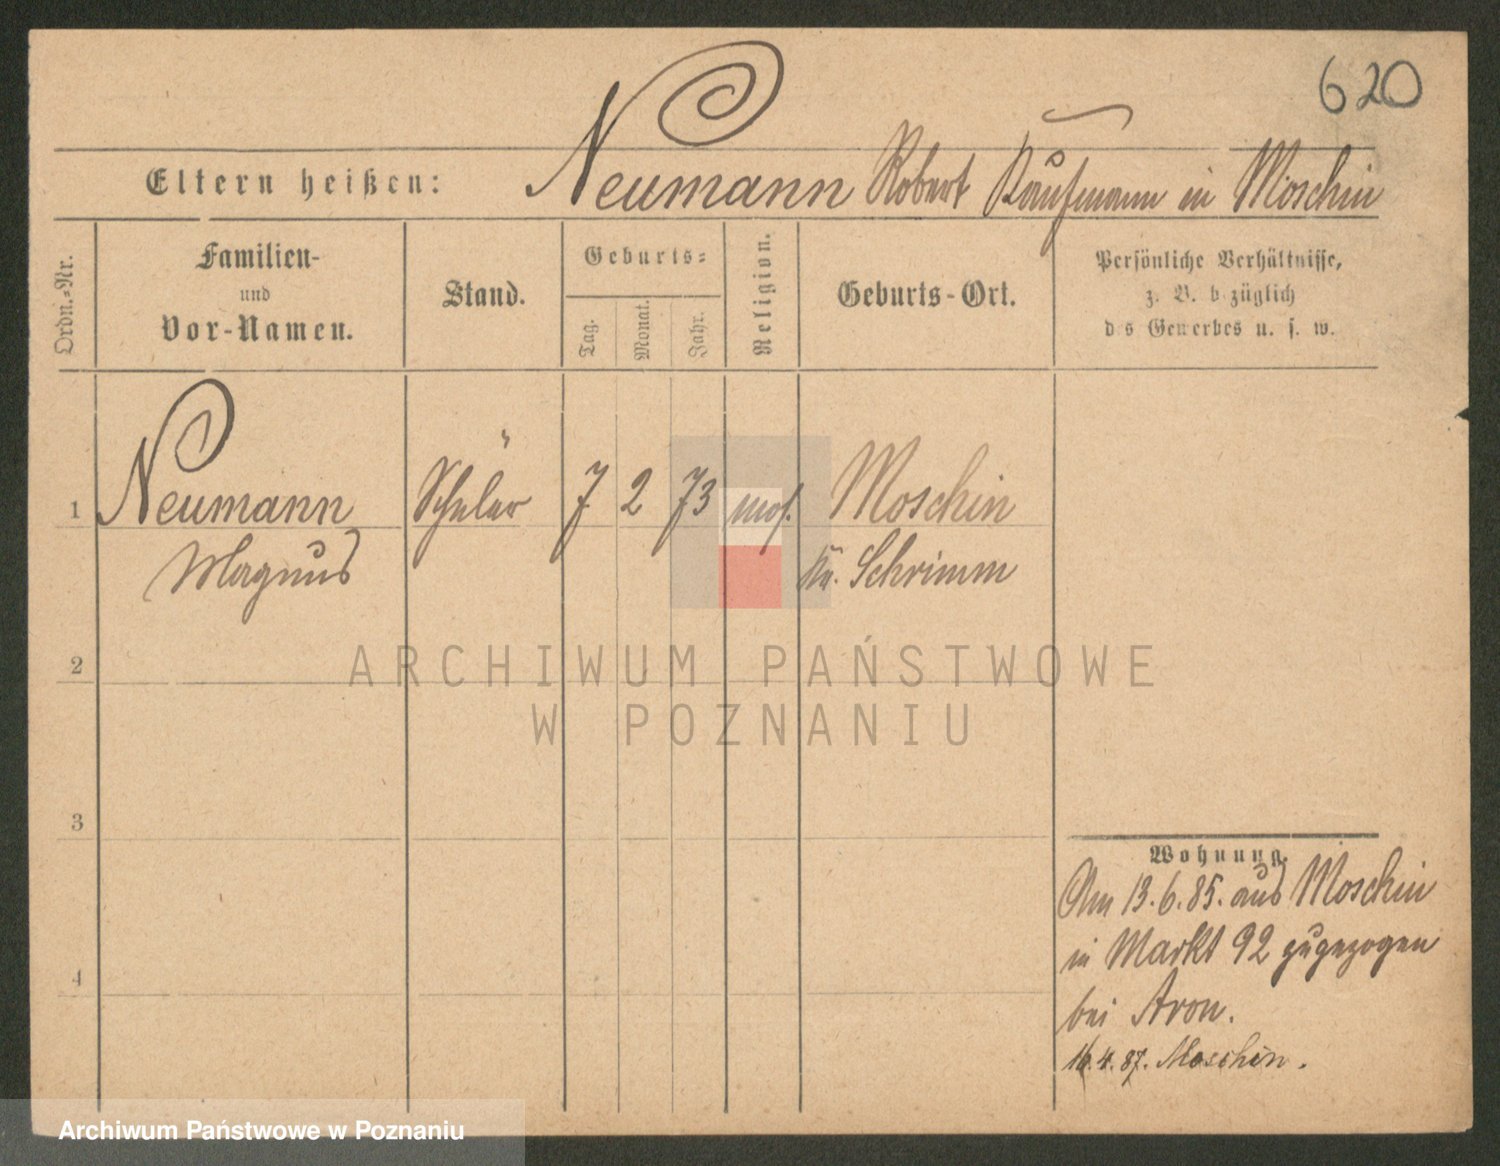 620
Eltern heißen: Neumann Robert Kaufmann in Moschin
Ordn.-Nr.
Familien-
und
Vor-Namen.
Stand.
Geburts-
Tag.
Monat.
Jahr.
Religion.
Geburts-Ort.
Persönliche Verhältnisse,
z. B. b züglich
d s Gewerbes u. s. w.
1 Neumann Schüler 7 2 73 mos. Moschin
Magnus Kr. Schrimm
2
3
4
Wohnung.
Am 13.6.85. aus Moschin
in Markt 92 zugezogen
bei Aron.
16.4.87. Moschin.
ARCHIWUM PAŃSTWOWE
W POZNANIU
Archiwum Państwowe w Poznaniu